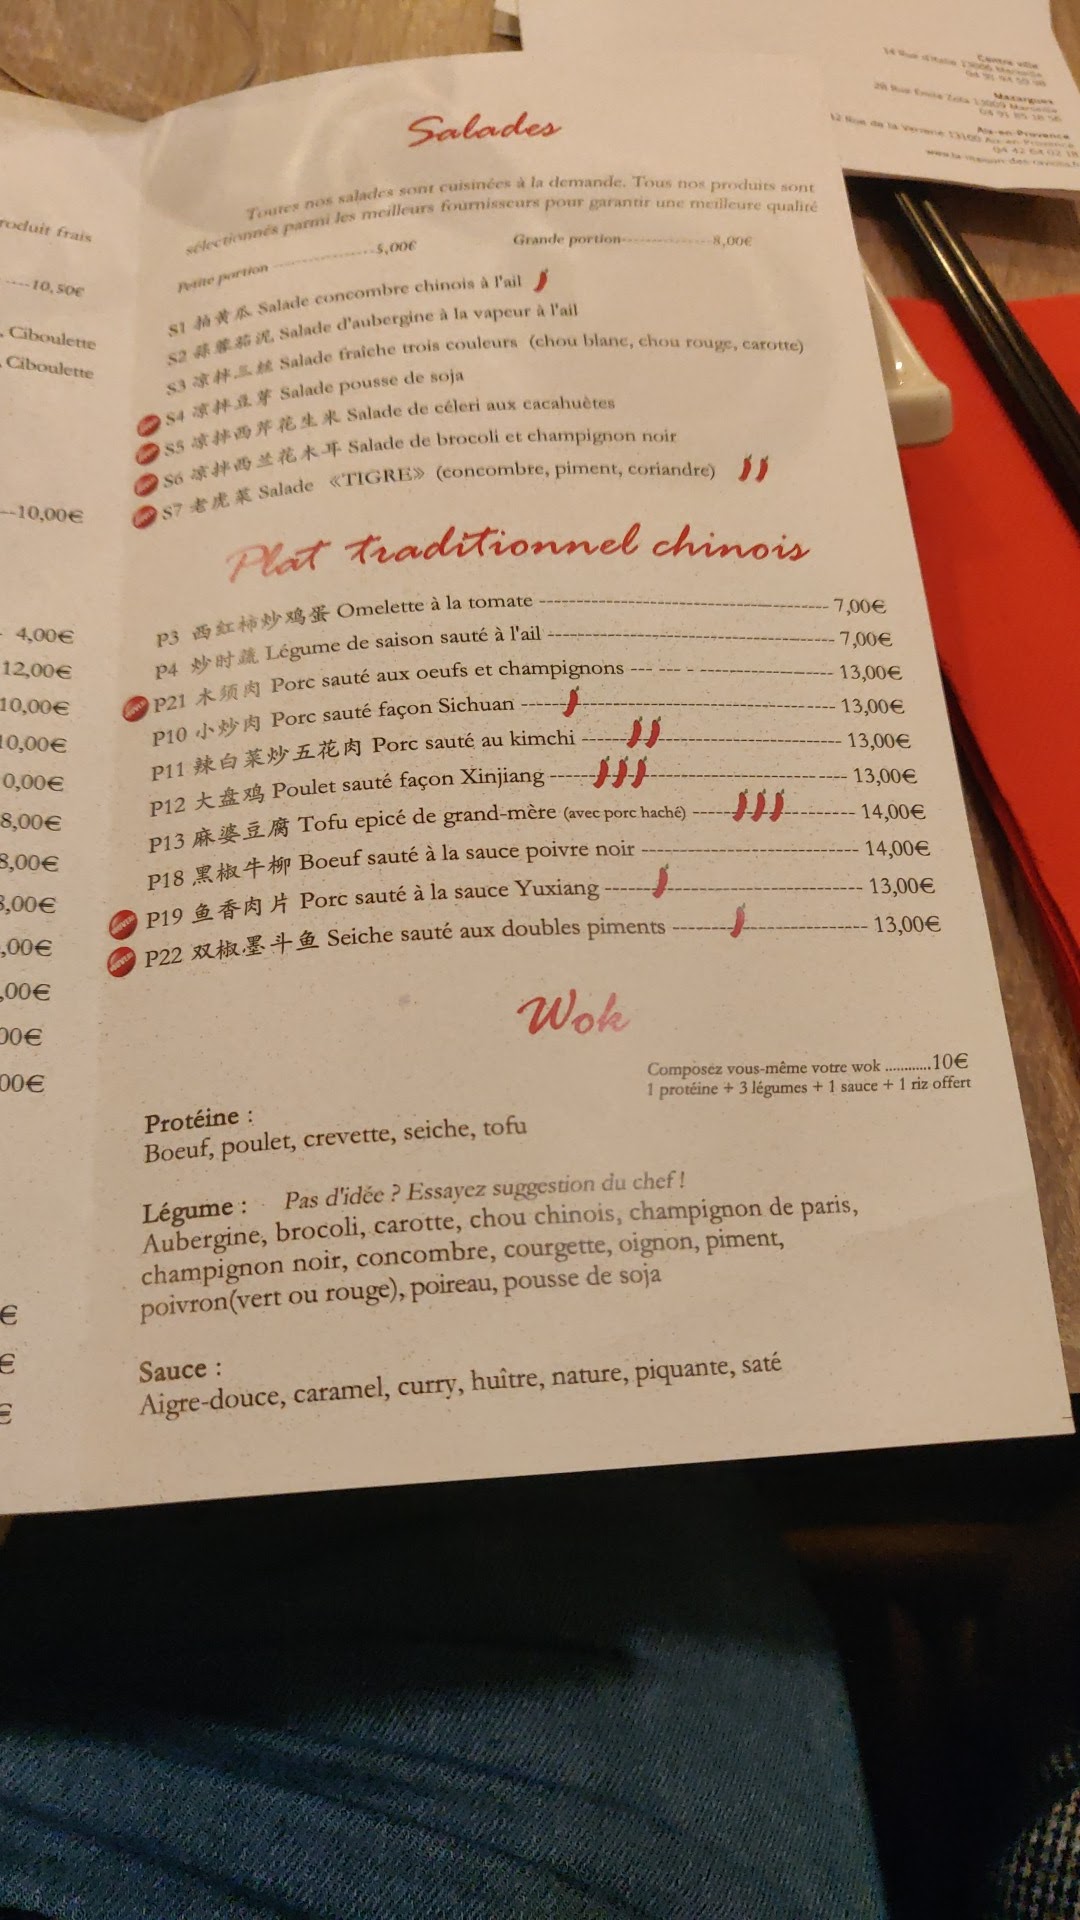 Centre ville
14 Rue d'Italie 13006 Marseille
04 91
Mazargues
28 Rue Emile Zola 13009 Marseille
04 91 85 18 56
Aix-en-Provence
12 Rue de la Verrerie 13100 Aix-en-Provence
04 42 64 02 18
www.la-maison-des-raviolis.fr
roduit frais
----10,50€
, Ciboulette
, Ciboulette
--10,00€
- 4,00€
12,00€
10,00€
10,00€
0,00€
8,00€
8,00€
8,00€
,00€
,00€
00€
00€
€
€
€
Salades
Toutes nos salades sont cuisinées à la demande. Tous nos produits sont
sélectionnés parmi les meilleurs fournisseurs pour garantir une meilleure qualité
Petite portion -------------------5,00€ Grande portion----------------8,00€
S1 拍黄瓜 Salade concombre chinois à l'ail
S2 蒜蓉茄泥 Salade d'aubergine à la vapeur à l'ail
S3 凉拌三丝 Salade fraîche trois couleurs (chou blanc, chou rouge, carotte)
S4 凉拌豆芽 Salade pousse de soja
S5 凉拌西芹花生米 Salade de céleri aux cacahuètes
S6 凉拌西兰花木耳 Salade de brocoli et champignon noir
S7 老虎菜 Salade 《TIGRE》 (concombre, piment, coriandre)
Plat traditionnel chinois
P3 西紅柿炒鸡蛋 Omelette à la tomate ----------------------------------------7,00€
P4 炒时蔬 Légume de saison sauté à l'ail ----------------------------------------7,00€
P21 木须肉 Porc sauté aux oeufs et champignons --- -- - --------------------13,00€
P10 小炒肉 Porc sauté façon Sichuan ----------------------------------------13,00€
P11 辣白菜炒五花肉 Porc sauté au kimchi ----------------------------------13,00€
P12 大盘鸡 Poulet sauté façon Xinjiang --------------------------------------13,00€
P13 麻婆豆腐 Tofu epicé de grand-mère (avec porc haché) --------------------14,00€
P18 黑椒牛柳 Boeuf sauté à la sauce poivre noir ----------------------------14,00€
P19 鱼香肉片 Porc sauté à la sauce Yuxiang ---------------------------------13,00€
P22 双椒墨斗鱼 Seiche sauté aux doubles piments ------------------------13,00€
Wok
Composez vous-même votre wok ............10€
1 protéine + 3 légumes + 1 sauce + 1 riz offert
Protéine :
Boeuf, poulet, crevette, seiche, tofu
Légume : Pas d'idée ? Essayez suggestion du chef !
Aubergine, brocoli, carotte, chou chinois, champignon de paris,
champignon noir, concombre, courgette, oignon, piment,
poivron(vert ou rouge), poireau, pousse de soja
Sauce :
Aigre-douce, caramel, curry, huître, nature, piquante, saté